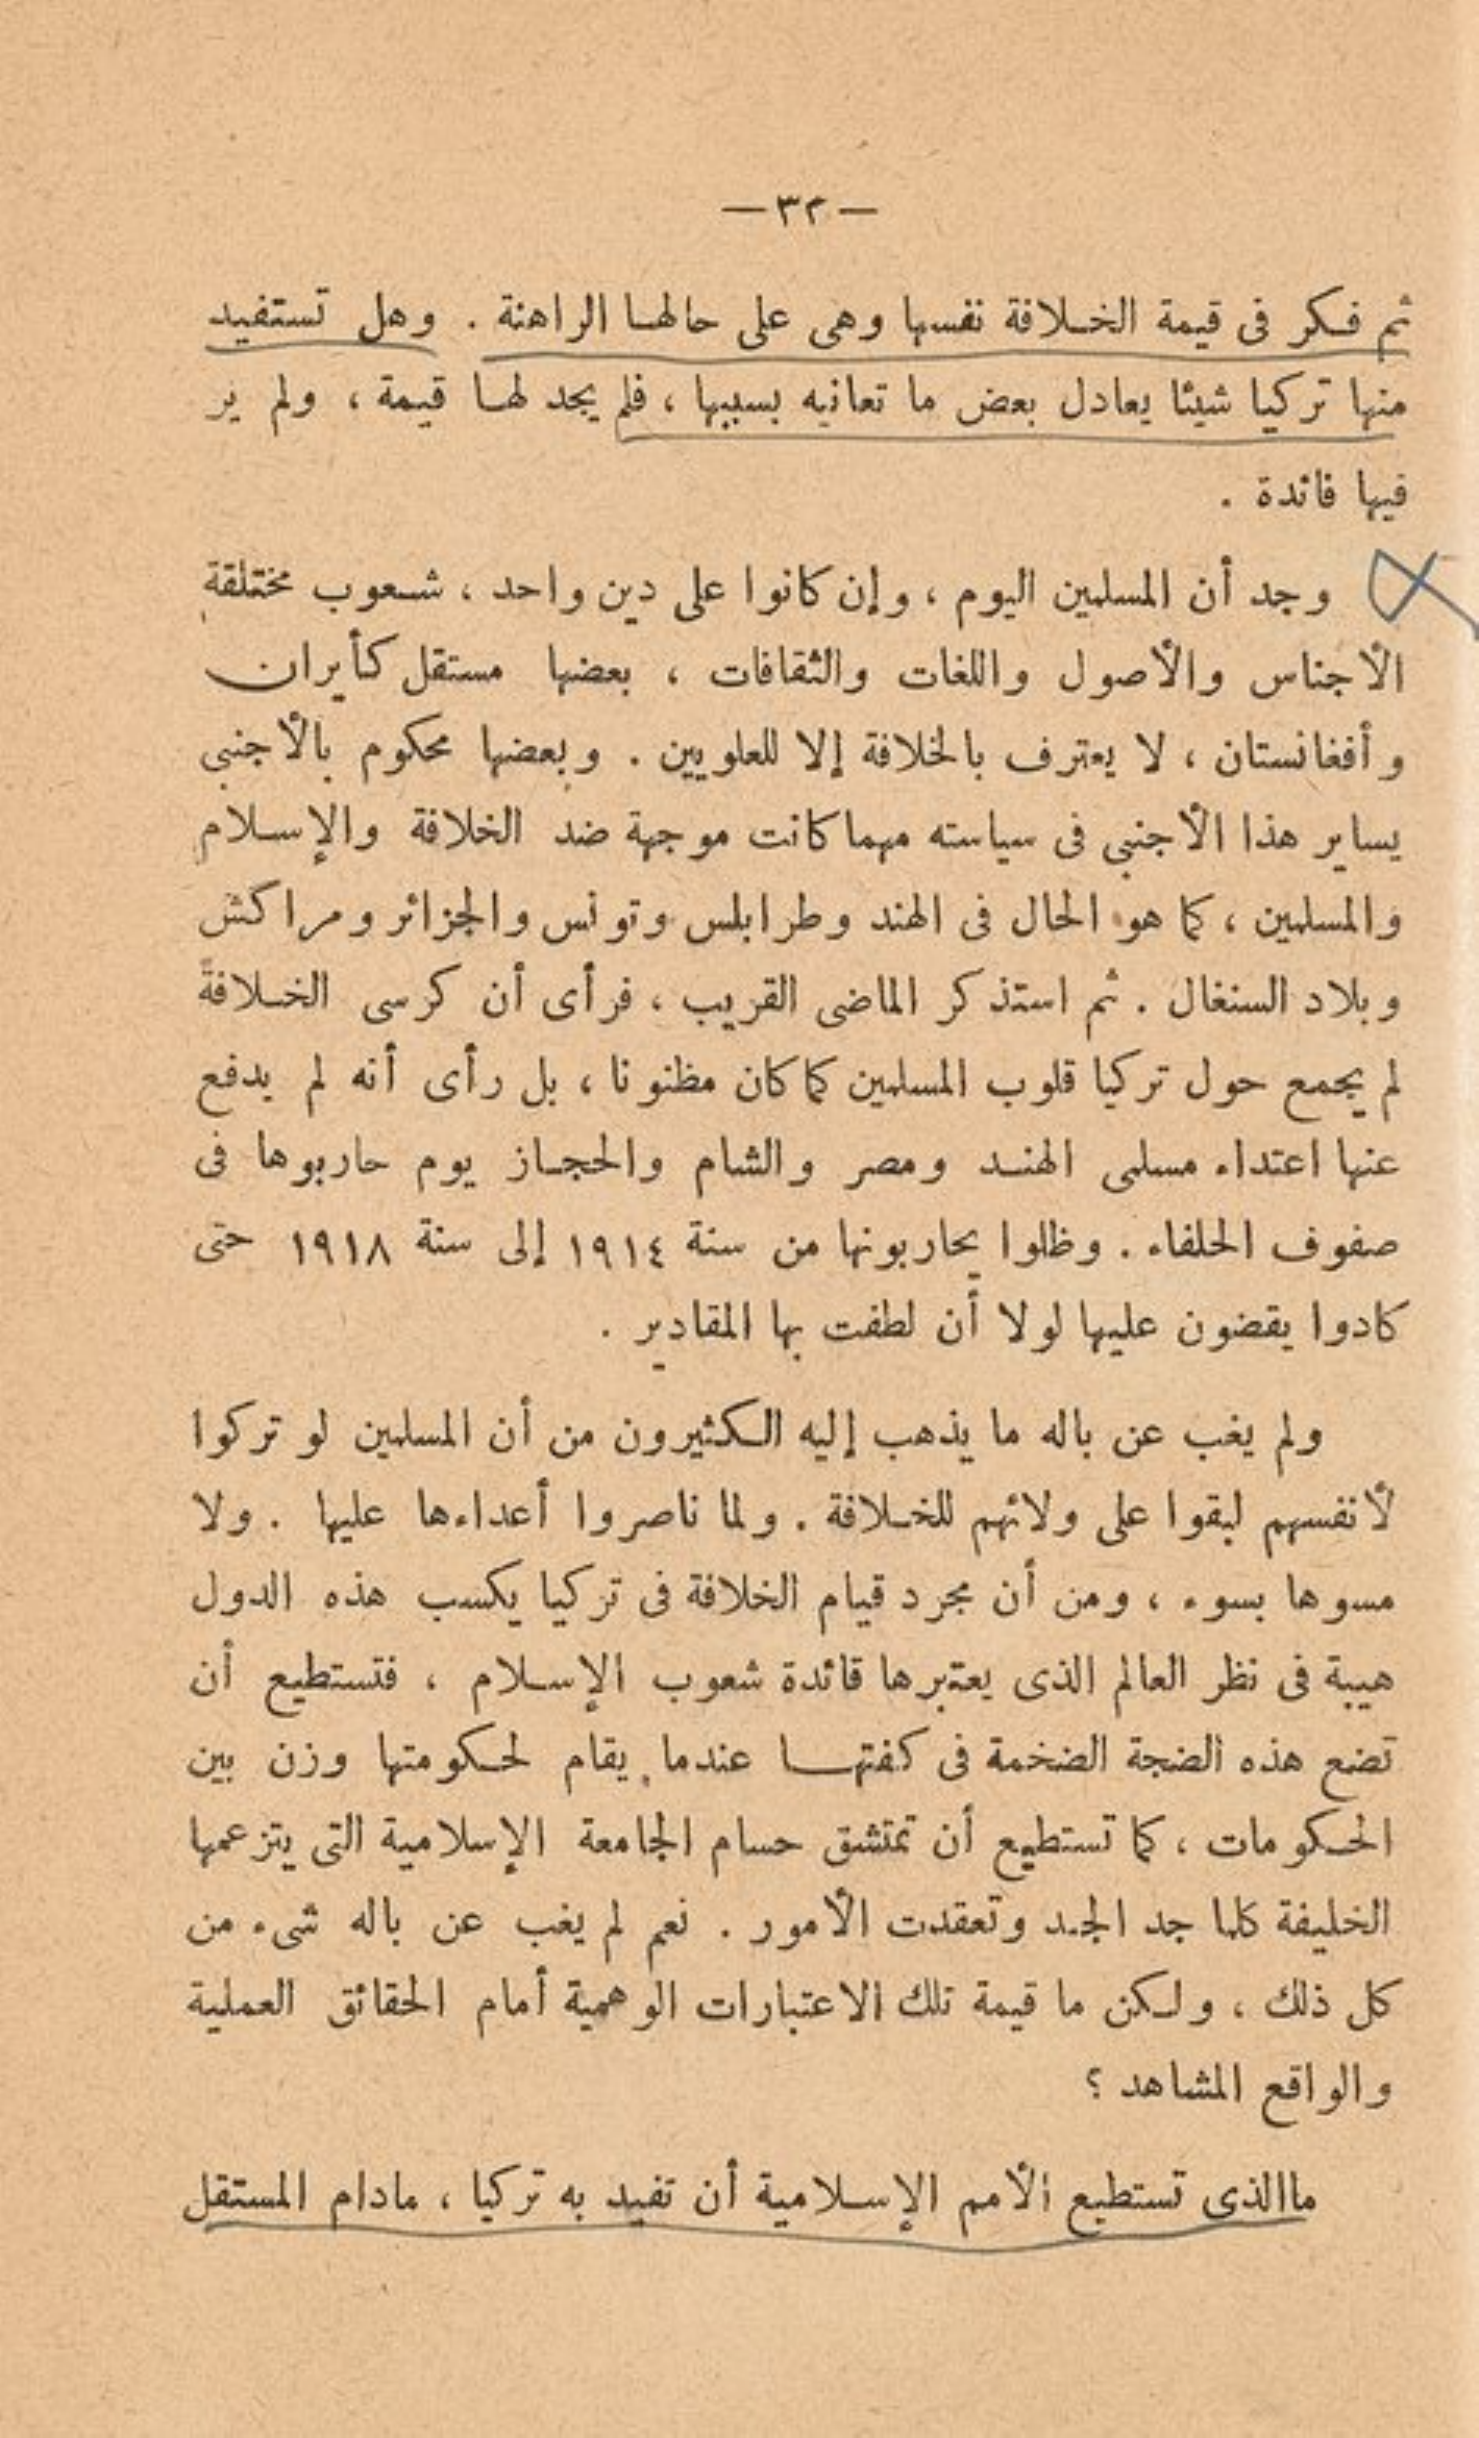 — ٣٢ —
ثم فكر فى قيمة الخلافة نفسها وهى على حالها الراهنة . وهل تستفيد
منها تركيا شيئا يعادل بعض ما تعانيه بسببها ، فلم يجد لها قيمة ، ولم ير
فيها فائدة .
وجد أن المسلمين اليوم ، وإن كانوا على دين واحد ، شعوب مختلفة
الأجناس والأصول واللغات والثقافات ، بعضها مستقل كأيران
وأفغانستان ، لا يعترف بالخلافة إلا للعلويين . وبعضها محكوم بالأجنبى
يساير هذا الأجنبى فى سياسته مهما كانت موجهة ضد الخلافة والإسلام
والمسلمين ، كما هو الحال فى الهند وطرابلس وتونس والجزائر ومراكش
وبلاد السنغال . ثم استذكر الماضى القريب ، فرأى أن كرسى الخلافة
لم يجمع حول تركيا قلوب المسلمين كما كان مظنونا ، بل رأى أنه لم يدفع
عنها اعتداء مسلمى الهند ومصر والشام والحجاز يوم حاربوها فى
صفوف الحلفاء . وظلوا يحاربونها من سنة ١٩١٤ إلى سنة ١٩١٨ حتى
كادوا يقضون عليها لولا أن لطفت بها المقادير .
ولم يغب عن باله ما يذهب إليه الكثيرون من أن المسلمين لو تركوا
لأنفسهم لبقوا على ولائهم للخلافة . ولما ناصروا أعداءها عليها . ولا
مسوها بسوء ، ومن أن مجرد قيام الخلافة فى تركيا يكسب هذه الدول
هيبة فى نظر العالم الذى يعتبرها قائدة شعوب الإسلام ، فتستطيع أن
تضع هذه الضجة الضخمة فى كفتها عندما يقام لحكومتها وزن بين
الحكومات ، كما تستطيع أن تمتشق حسام الجامعة الإسلامية التى يتزعمها
الخليفة كلما جد الجد وتعقدت الأمور . نعم لم يغب عن باله شىء من
كل ذلك ، ولكن ما قيمة تلك الاعتبارات الوهمية أمام الحقائق العملية
والواقع المشاهد ؟
ماالذى تستطيع الأمم الإسلامية أن تفيد به تركيا ، مادام المستقل